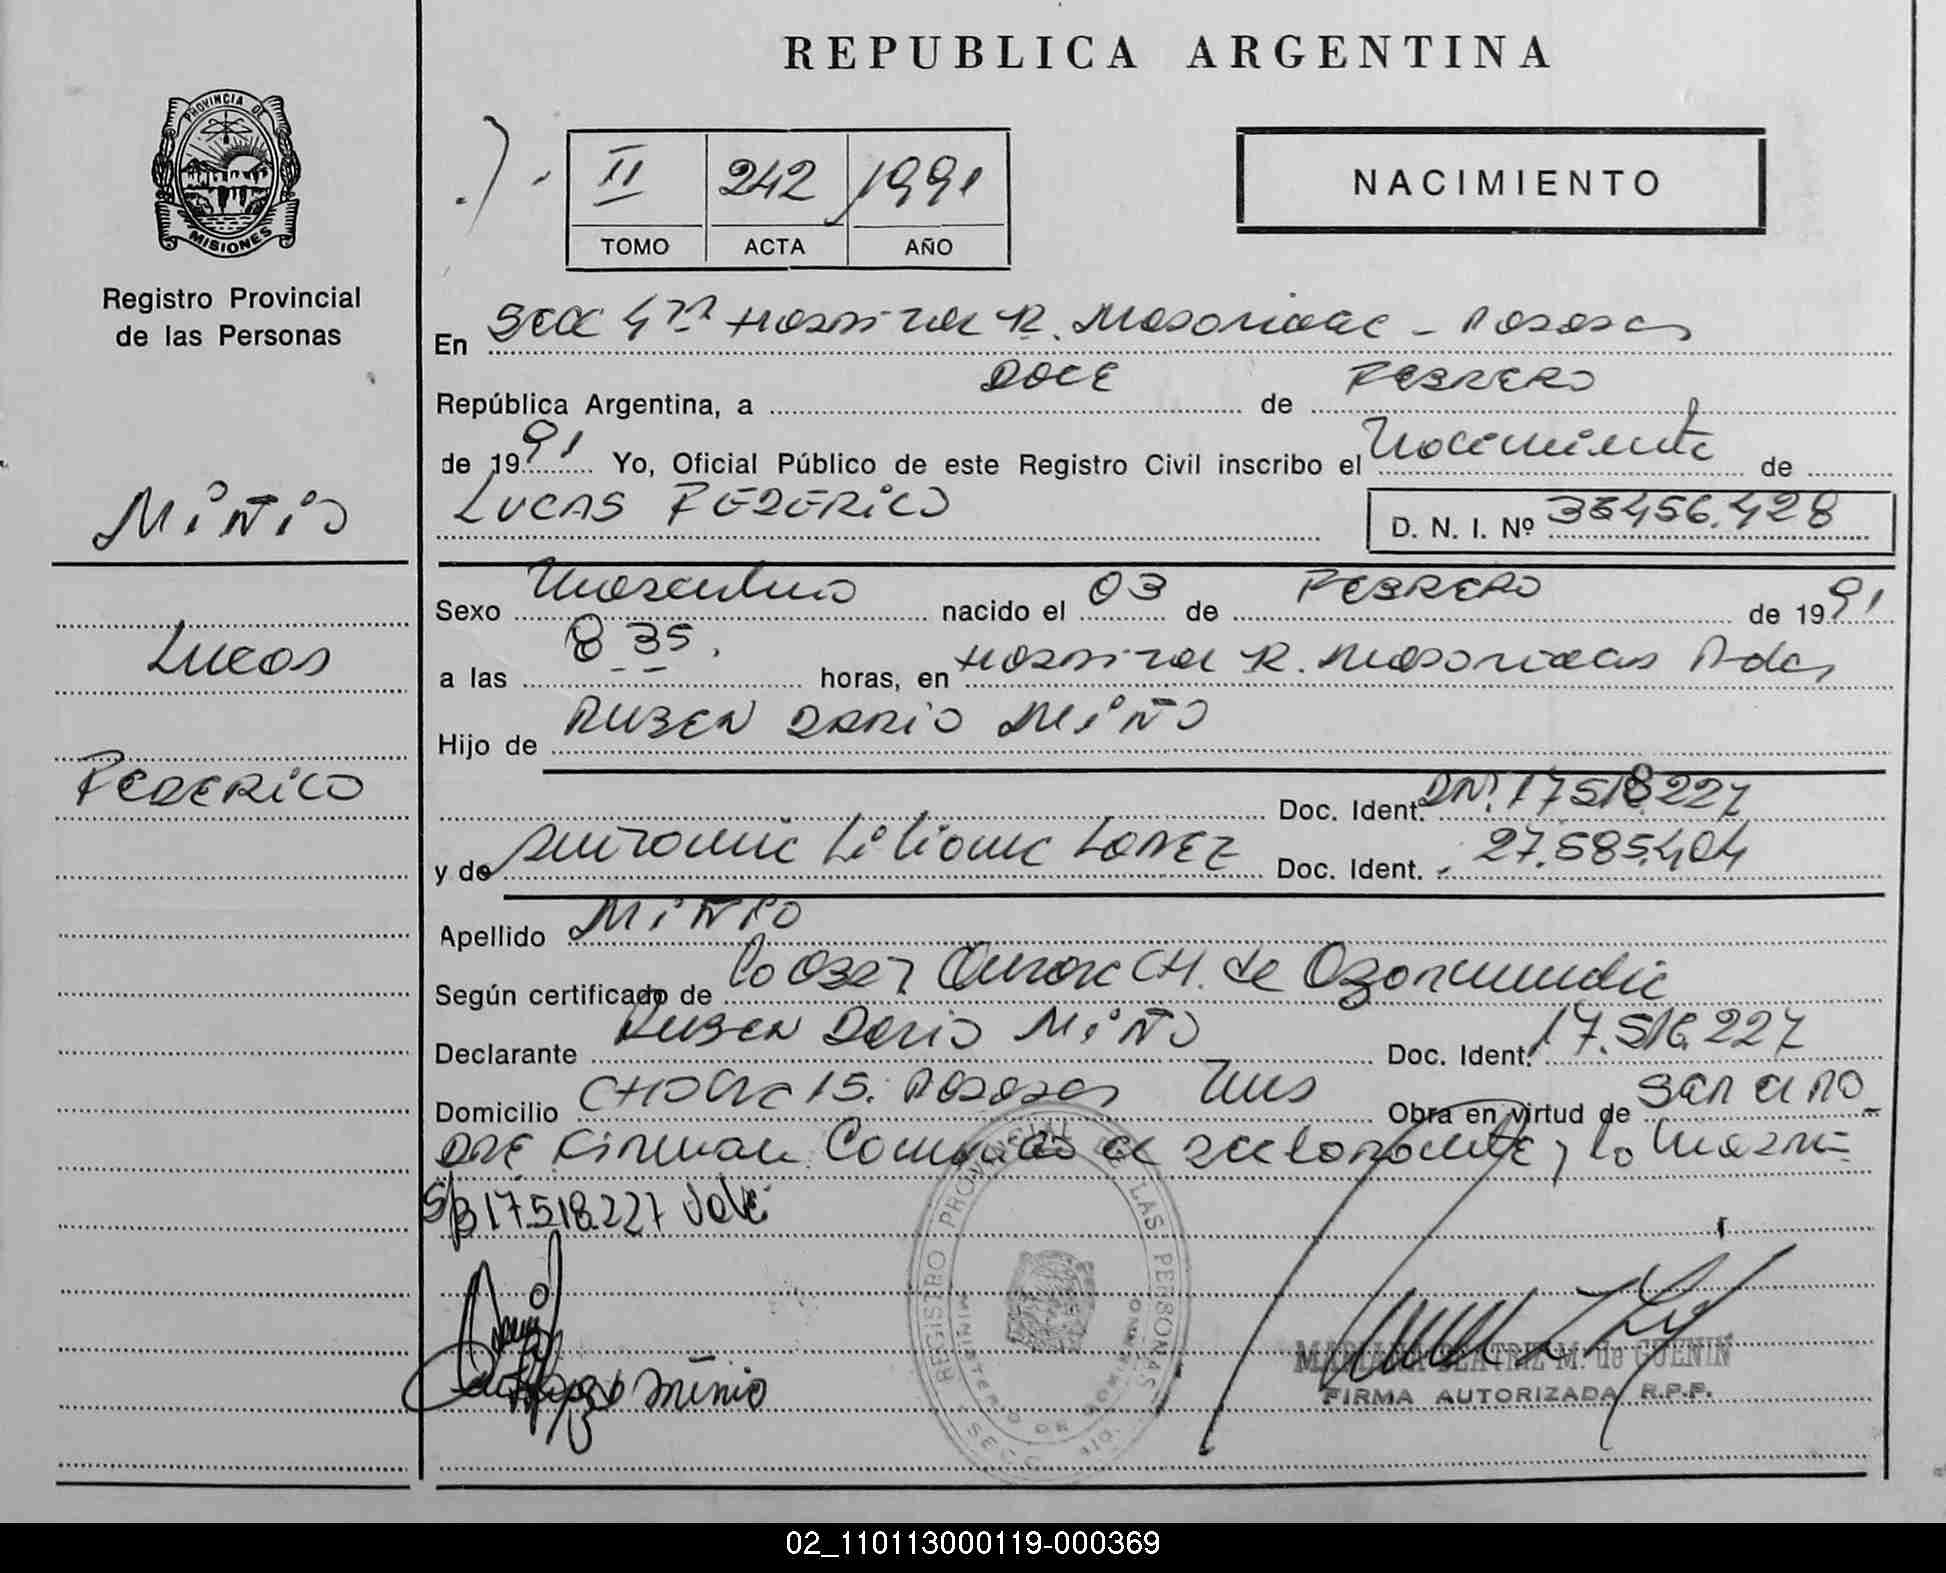 REPUBLICA ARGENTINA
PROVINCIA DE
MISIONES
Registro Provincial
de las Personas
II 242 1991
TOMO ACTA AÑO
NACIMIENTO
En Secc 4ta Hospital R. Madariaga - Posadas
República Argentina, a DOCE de FEBRERO
de 1991 Yo, Oficial Público de este Registro Civil inscribo el Nacimiento de
LUCAS FEDERICO
D. N. I. Nº 456.428
MIÑO
Lucas
FEDERICO
Sexo Masculino nacido el 03 de FEBRERO de 1991
a las 8 35. horas, en Hospital R. Madariaga Pdas
Hijo de RUBEN DARIO MIÑO
Doc. Ident. DNI. 17 518 227
y de Liliana LOPEZ Doc. Ident. 27.585.404
Apellido MIÑO
Según certificado de la Obst CH. de
Declarante RUBEN Dario MIÑO Doc. Ident. 17.516.227
Domicilio CH 15. Posadas Mis Obra en virtud de ser el pa-
DRE Firman el declarante y la madre
S/B 17.518.227 Vale
Miño
REGISTRO PROVINCIAL DE LAS PERSONAS
MINISTERIO DE GOBIERNO
MARIANA BEATRIZ M. de GUENIN
FIRMA AUTORIZADA R.P.P.
02_110113000119-000369